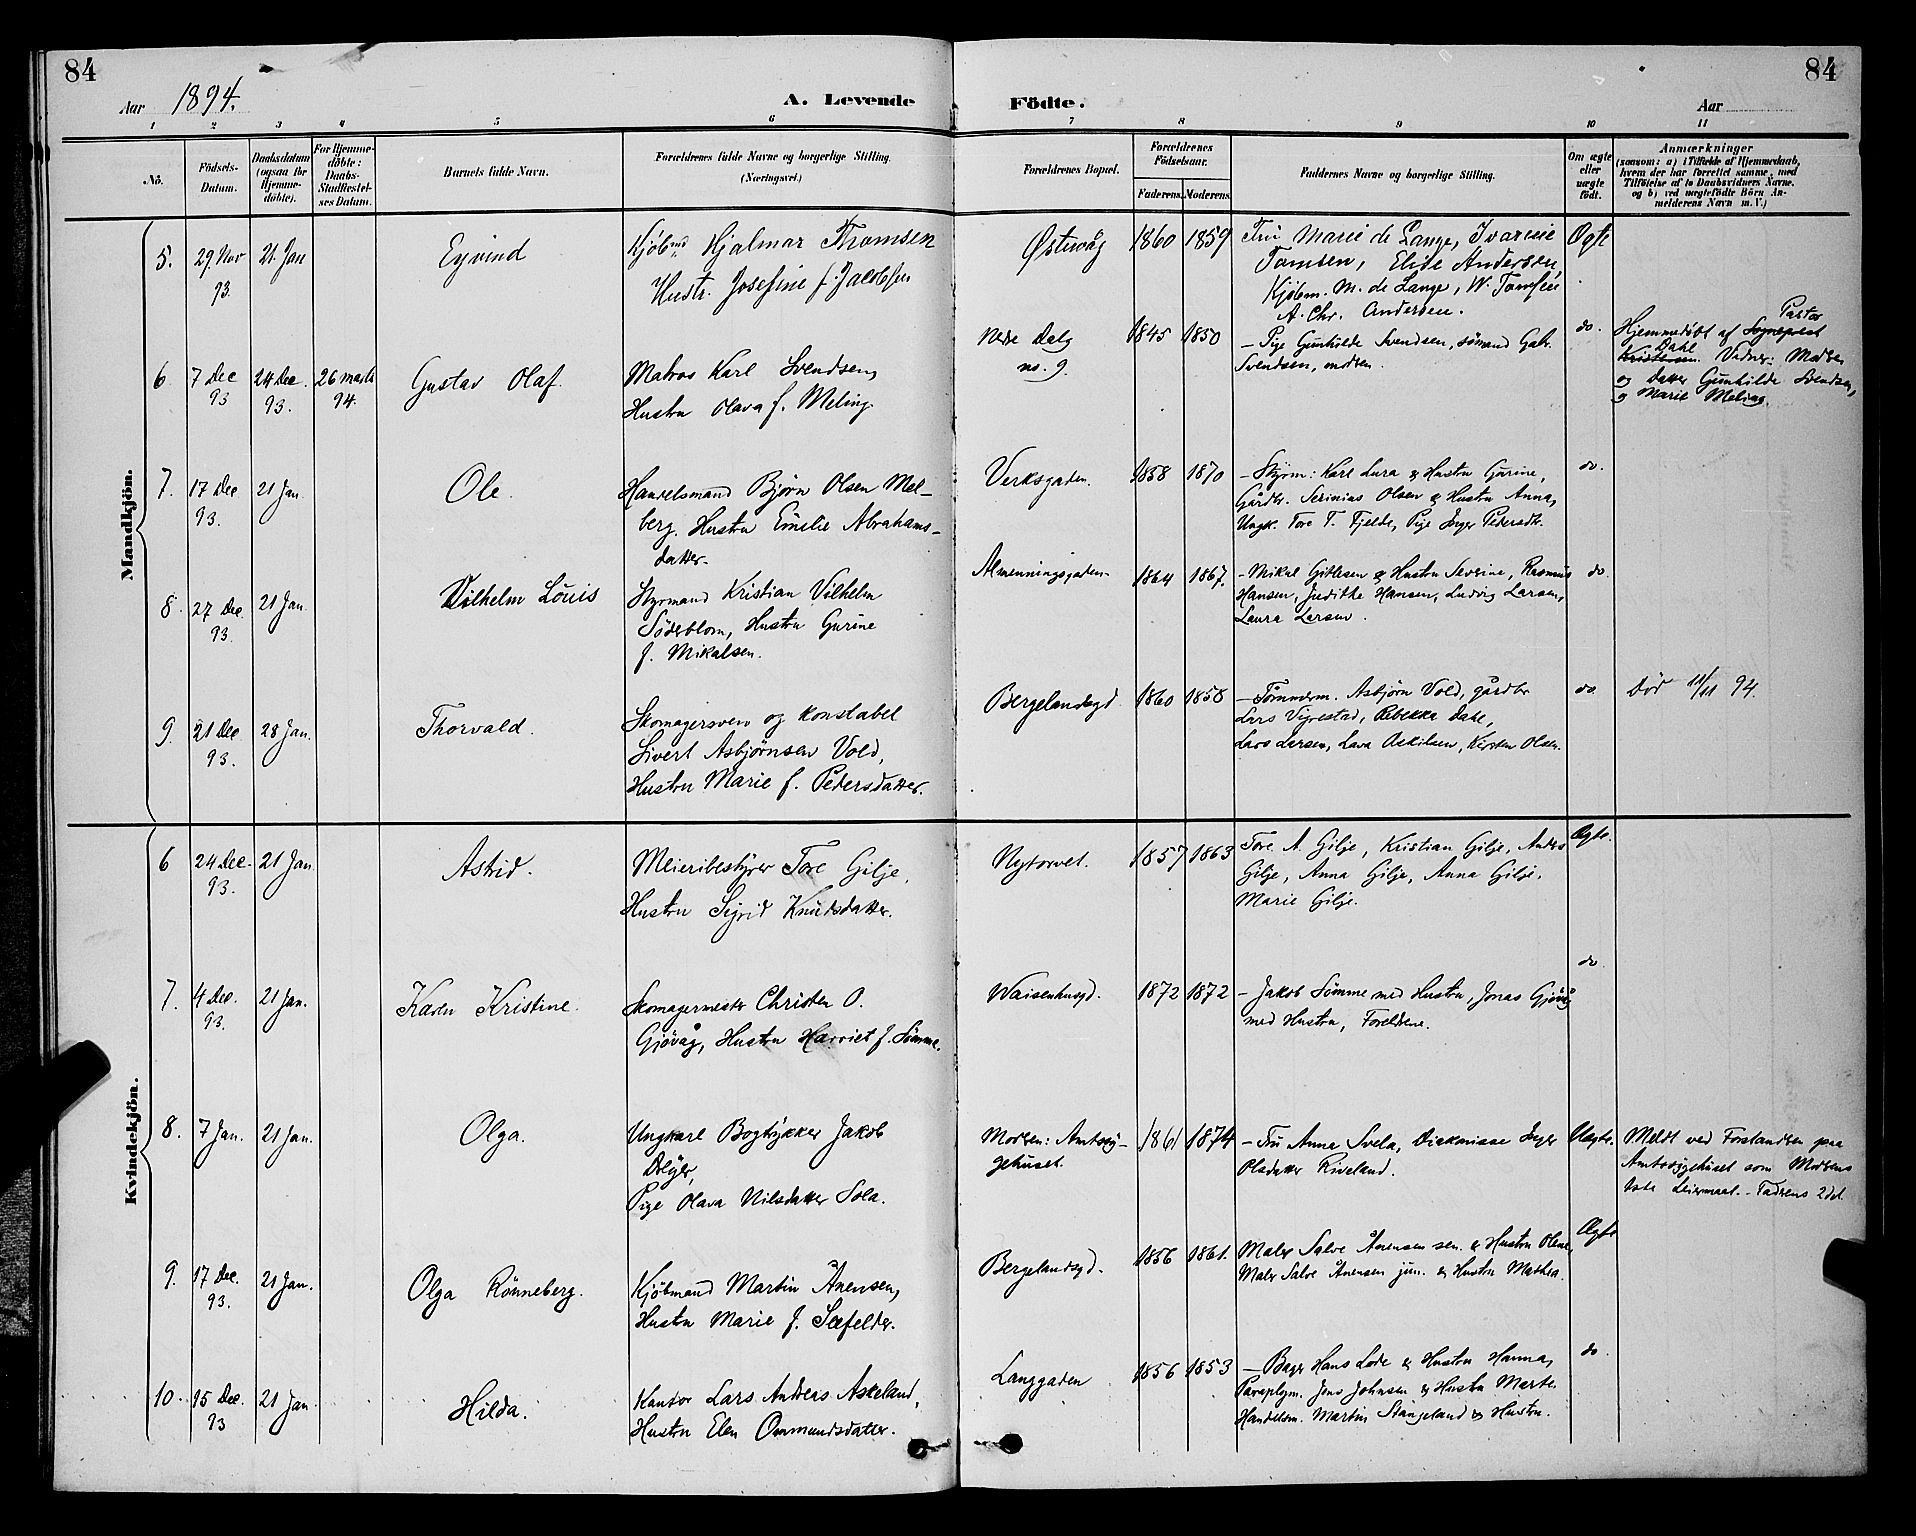 84
84
Aar 1894.
A. Levende
Födte.
Aar
1 2 3 4 5 6 7 8 9 10 11
No.
Födsels-
Datum.
Daabsdatum
(ogsaa for
Hjemme-
döbte).
For Hjemme-
döbte:
Daabs-
Stadfæstel-
ses Datum.
Barnets fulde Navn.
Forældrenes fulde Navne og borgerlige Stilling.
(Næringsvei.)
Forældrenes Bopæl.
Forældrenes
Födselsaar.
Faderens. Moderens.
Faddernes Navne og borgerlige Stilling.
Om ægte
eller
uægte
födt.
Anmærkninger
(saasom: a) i Tilfælde af Hjemmedaab,
hvem der har forrettet samme, med
Tilföielse af to Daabsvidners Navne,
og b) ved uægtefödte Börn An-
melderens Navn m. V.)
Mandkjön.
5. 29. Nov 93. 21. Jan
Eyvind
Kjöbmd Hjalmar Thomsen
Hustr. Josefine f. Jacobsen
Østervåg
1860 1859
Fru Marie de Lange, Ivarine
Tomsen, Elide Andersen,
Kjöbm. M. de Lange, W. Tomsen
A. Chr. Andersen.
Ægte
6 7 Dec 93 24 Dec. 93. 26 marts 94.
Gustav Olaf.
Matros Karl Svendsen,
Hustru Olava f. Meling
Nedre Dalg
no. 9.
1845 1850
– Pige Gunhilde Svendsen, sömand Gab.
Svendsen, modren.
do.
Pastor
Hjemmedöbt af Sogneprest
Dahl
Kristensen. Vidner: Modren
og Datter Gunhilde Svendsen,
og Marie Meling.
7. 17 Dec 93. 21 Jan.
Ole.
Handelsmand Björn Olsen Mel-
berg, Hustru Emilie Abrahams-
datter.
Verksgaden.
1858 1870
– Styrm: Karl Lura & Hustru Gurine,
Gårdbr. Serinius Olsen & Hustru Anna,
Ungk. Tore T. Fjelde, Pige Inger Pedersdt.
do.
8. 27 Dec. 93. 21 Jan.
Vilhelm Louis
Styrmand Kristian Vilhelm
Söderblom, Hustru Gurine
f. Mikalsen.
Almenningsgaden
1864 1867.
– Mikal Gitlesen & Hustru Severine, Rasmus
Hansen, Judithe Hansen, Ludvig Larsen,
Laura Larsen.
do.
9. 21 Dec 93. 28 Jan.
Thorvald.
Skomagersvend og konstabel
Sivert Asbjørnsen Vold,
Hustru Marie f. Pedersdatter.
Bergelandsgd.
1860 1858
– Tömmerm. Asbjörn Vold, gårdbr
Lars Vigrestad, Rebekka Dahl,
Lars Larsen, Lava Askilsen, Kirsten Olsen.
do
Död 11/11 94.
Kvindekjön.
6 24 Dec. 93. 21 Jan.
Astrid.
Meieribestyrer Tore Gilje,
Hustru Sigrid Knudsdatter.
Nytorvet.
1857 1863
Tore A. Gilje, Kristian Gilje, Andrs
Gilje, Anna Gilje, Anna Gilje,
Marie Gilje.
Ægte.
7. 4 Dec. 93. 21 Jan.
Karen Kristine.
Skomagermester Christen O.
Gjövåg, Hustru Harriet f. Sömme.
Waisenhusgd.
1872 1872
– Jakob Sömme med Hustru, Jonas Gjövåg
med Hustru, Foreldrene.
do.
8. 7 Jan. 21 Jan.
Olga.
Ungkarl Bogtrykker Jakob
Dreyer,
Pige Olava Nilsdatter Sola.
Modren: Amtssy-
gehuset.
1861 1874
– Fru Anna Svela, Diakonisse Inger
Olsdatter Riveland.
Uægte.
Meldt ved Forstandren paa
Amtssygehuset som Modrens
1ste Leiermaal. – Fadrens 2det.
9. 17 Dec. 93. 21 Jan.
Olga Rönneberg.
Kjöbmand Martin Ånensen,
Hustru Marie f. Seefelder.
Bergelandsgd.
1856 1861.
Maler Salve Ånensen sen. & Hustru Olene,
Maler Salve Ånensen jun. & Hustru Mathea.
Ægte
10 15 Dec. 93 21 Jan
Hilda.
Kantor Lars Andreas Askeland,
Hustru Elen Ommundsdatter.
Langgaden
1856 1853
– Bager Hans Lode & Hustru Hanna,
Paraplym. Jens Johnsen & Hustru Marte
Handelsm. Martin Stangeland & Hustru.
do.